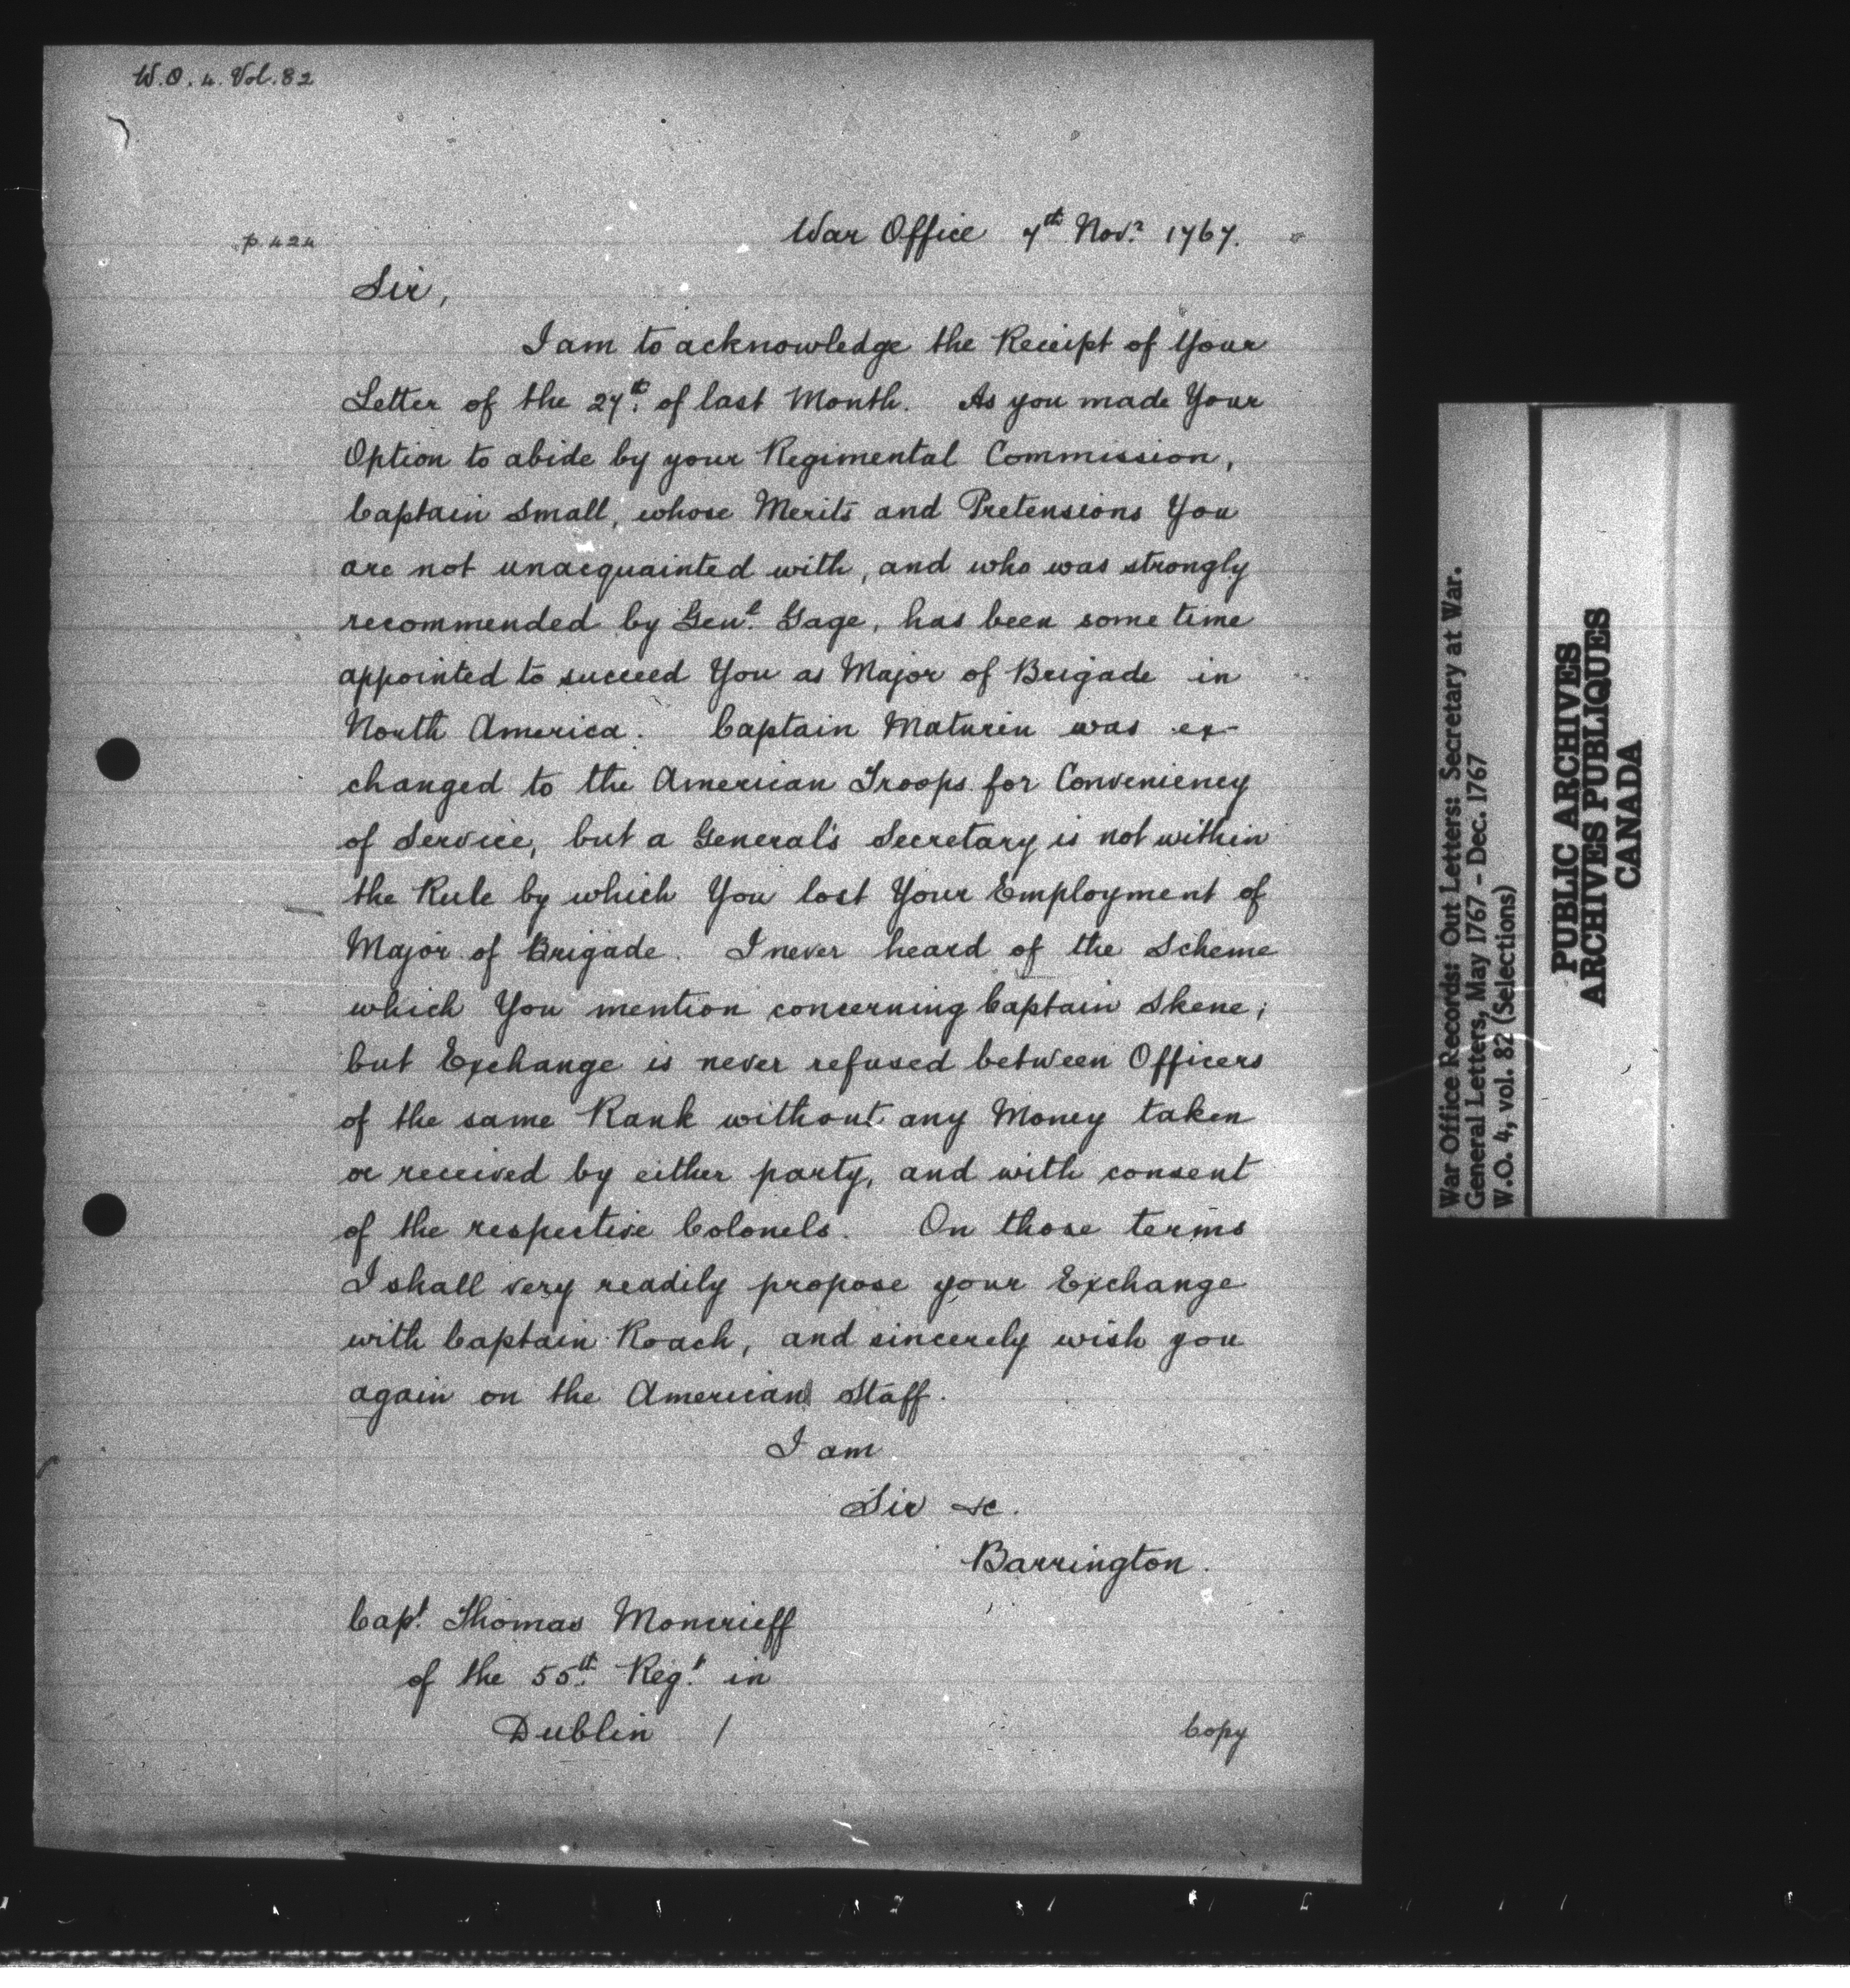 W.O. 4. Vol. 82
War Office 7th Novr 1767.
p. 424
Sir,
I am to acknowledge the Receipt of Your
Letter of the 27th of last Month. As you made Your
Option to abide by your Regimental Commission,
Captain Small, whose Merits and Pretensions You
are not unacquainted with, and who was strongly
recommended by Genl. Gage, has been some time
appointed to succeed You as Major of Brigade in
North America. Captain Maturin was ex-
changed to the American Troops for Conveniency
of Service, but a General's Secretary is not within
the Rule by which You lost Your Employment of
Major of Brigade. I never heard of the Scheme
which You mention concerning Captain Skene;
but Exchange is never refused between Officers
of the same Rank without any Money taken
or received by either party, and with consent
of the respective Colonels. On those terms
I shall very readily propose your Exchange
with Captain Roach, and sincerely wish you
again on the American Staff.
I am
Sir &c.
Barrington.
Capt. Thomas Moncrieff
of the 55th Regt. in
Dublin /
Copy
War Office Records: Out Letters: Secretary at War.
General Letters, May 1767 - Dec. 1767
W.O. 4, vol. 82 (Selections)
PUBLIC ARCHIVES
ARCHIVES PUBLIQUES
CANADA